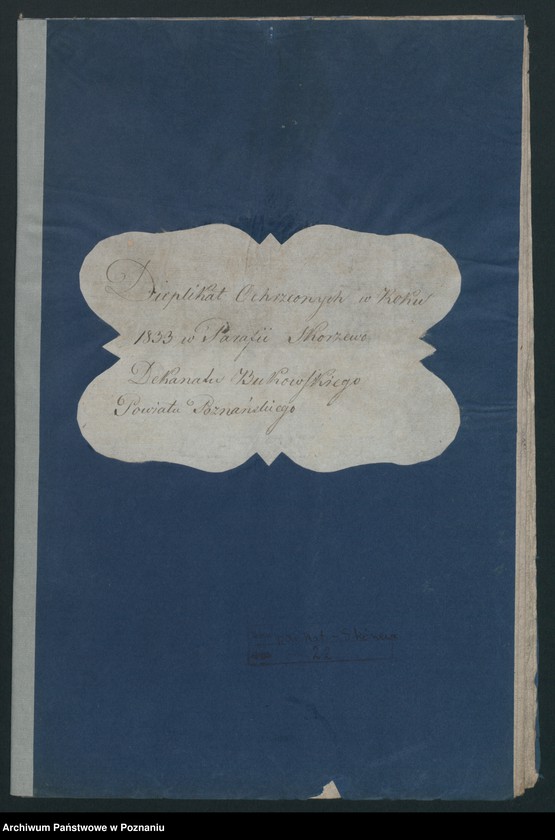 Duplikat Ochrzconych w Roku
1833 w Parafii Skorzewo
Dekanatu Bukowskiego
Powiatu Poznańskiego
22
Archiwum Państwowe w Poznaniu